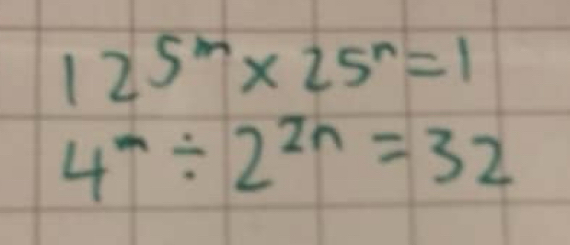 125ᵐ × 25ⁿ = 1
4ᵐ ÷ 2²ⁿ = 32